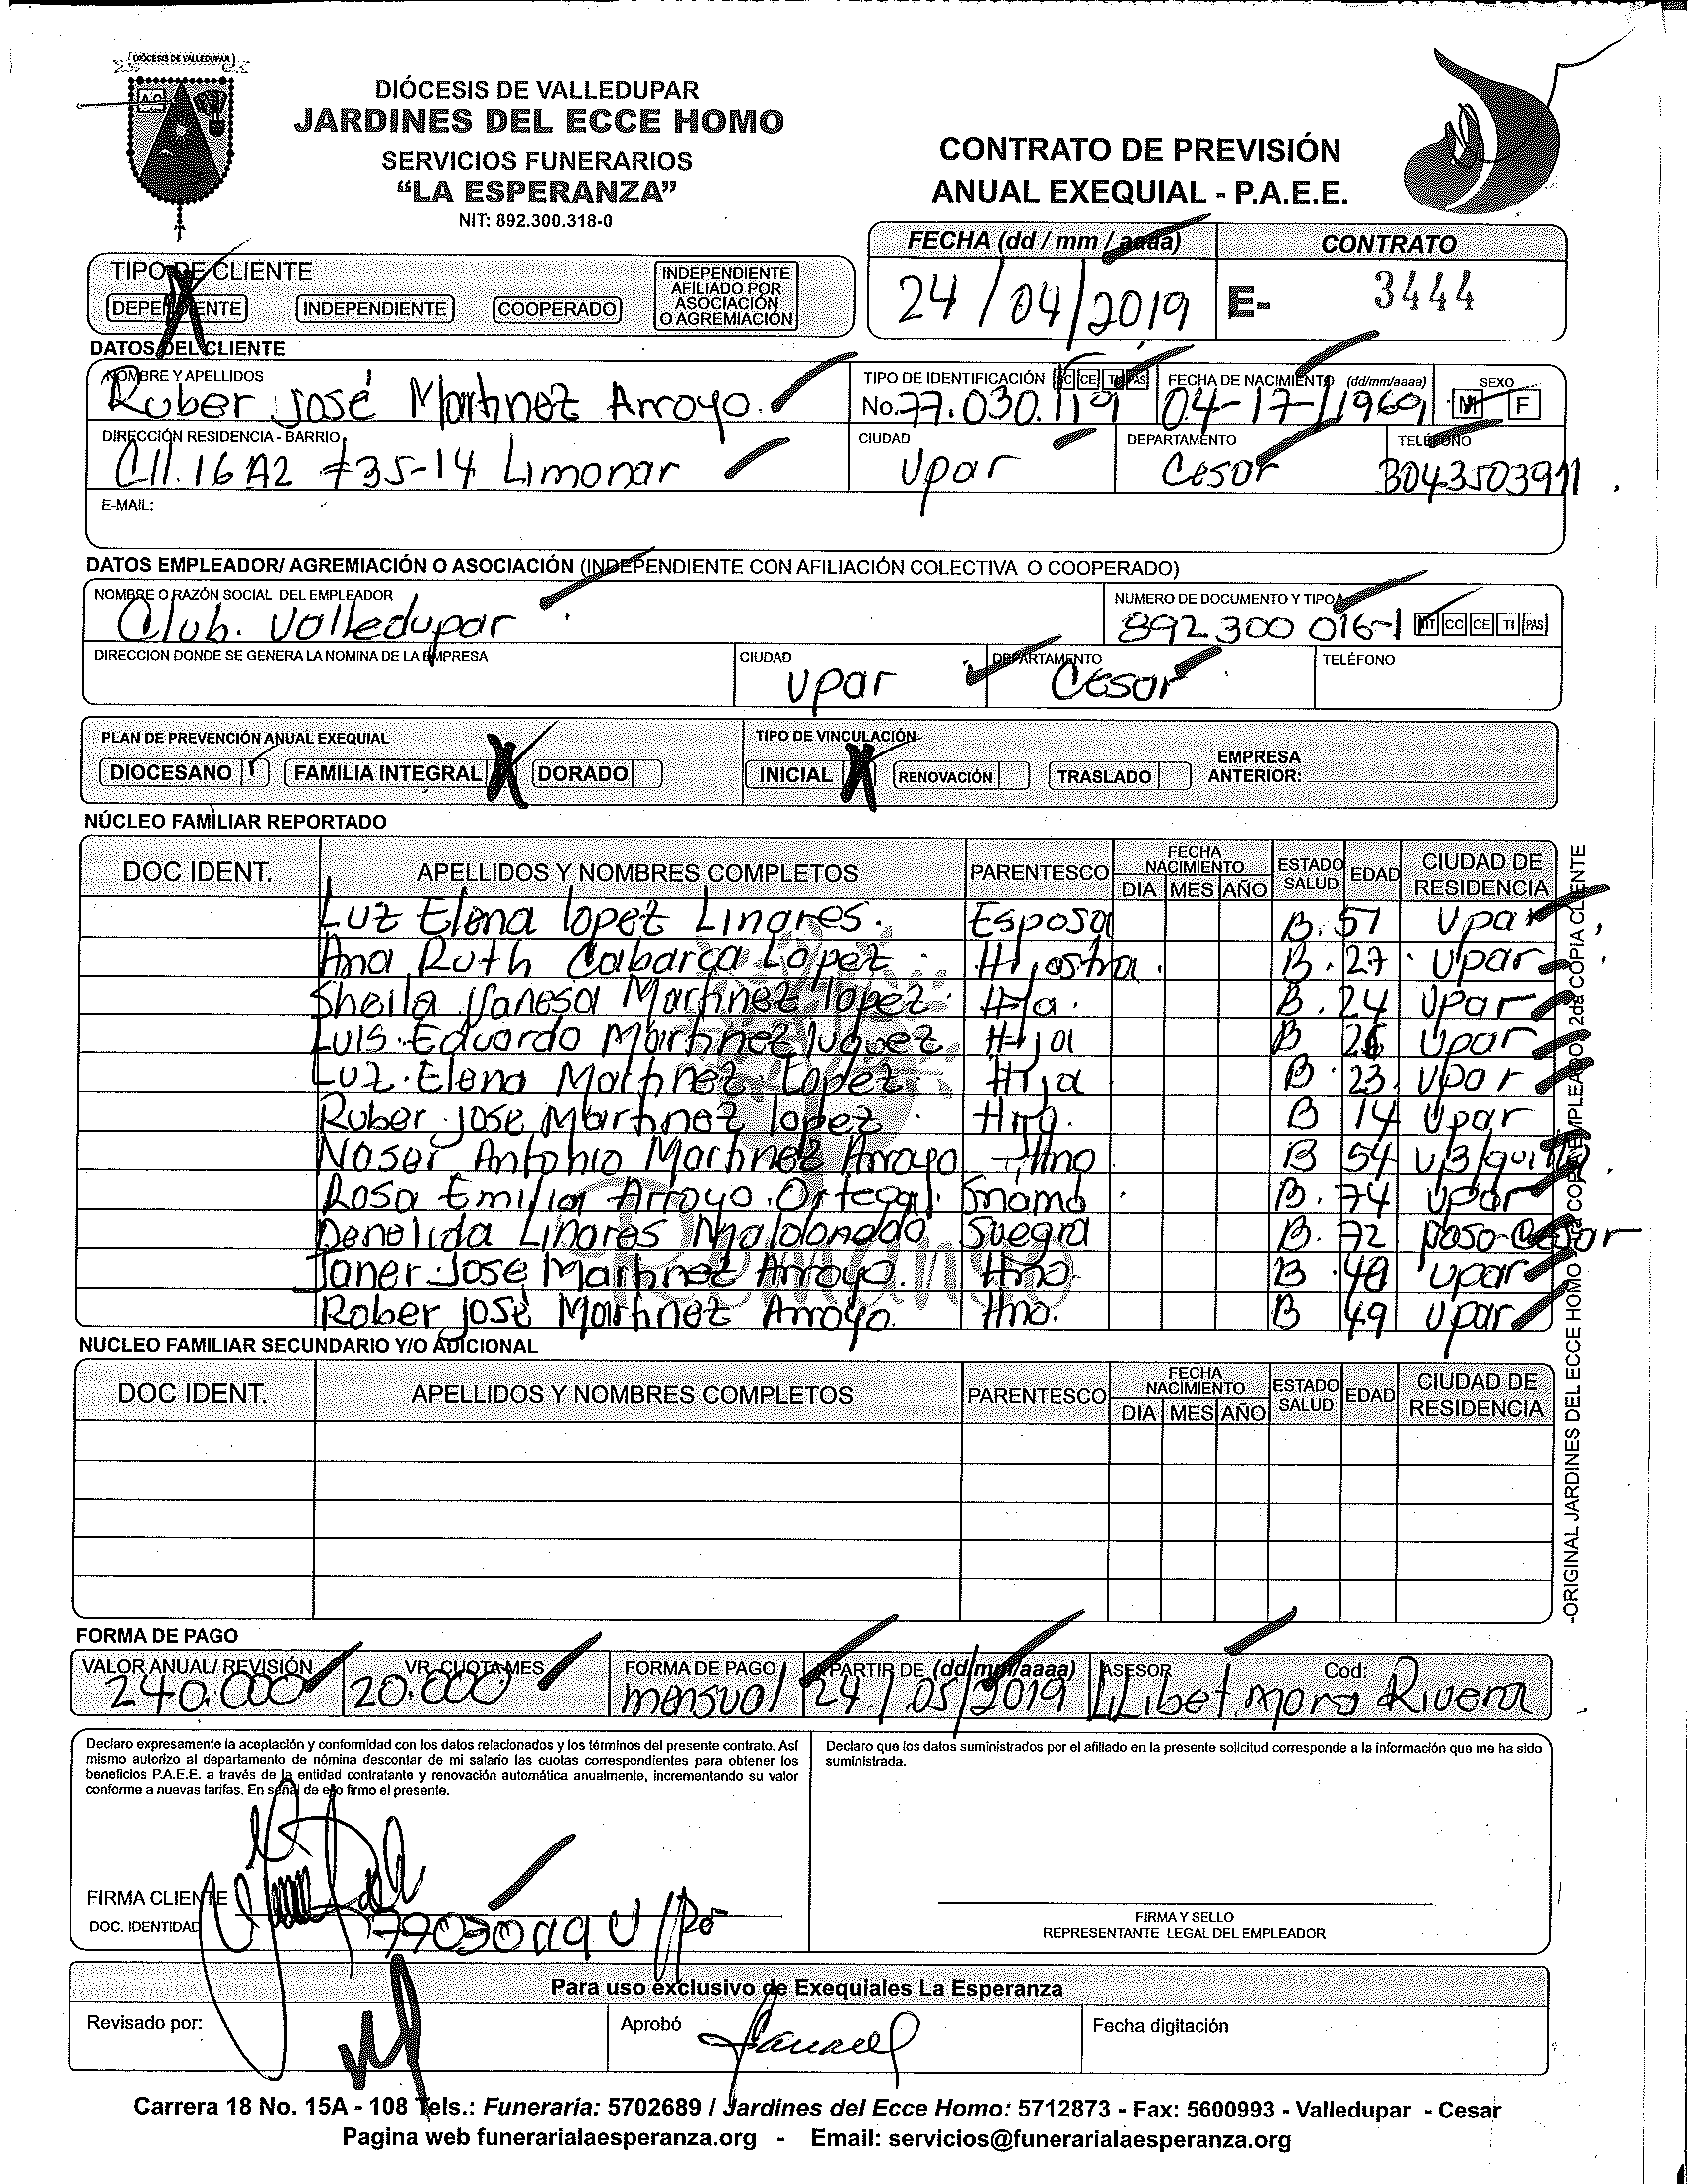 DIÓCESIS DE VALLEDUPAR
DIÓCESIS DE VALLEDUPAR
JARDINES DEL ECCE HOMO
SERVICIOS FUNERARIOS
"LA ESPERANZA"
NIT: 892.300.318-0
CONTRATO DE PREVISIÓN
ANUAL EXEQUIAL - P.A.E.E.
FECHA (dd / mm / aaaa) CONTRATO
24/04/2019 E- 3444
TIPO DE CLIENTE
DEPENDIENTE INDEPENDIENTE COOPERADO INDEPENDIENTE AFILIADO POR ASOCIACIÓN O AGREMIACIÓN
DATOS DEL CLIENTE
NOMBRE Y APELLIDOS TIPO DE IDENTIFICACIÓN CC CE TI PAS FECHA DE NACIMIENTO (dd/mm/aaaa) SEXO
Ruber José Martinez Arroyo. No. 77.030.119 04-17-1969 M F
DIRECCIÓN RESIDENCIA - BARRIO CIUDAD DEPARTAMENTO TELÉFONO
Cll. 16A2 #35-14 Limonar Upar Cesar 3043503911
E-MAIL:
DATOS EMPLEADOR/ AGREMIACIÓN O ASOCIACIÓN (INDEPENDIENTE CON AFILIACIÓN COLECTIVA O COOPERADO)
NOMBRE O RAZÓN SOCIAL DEL EMPLEADOR NUMERO DE DOCUMENTO Y TIPO
Club. Valledupar 892 300 016-1 NIT CC CE TI PAS
DIRECCION DONDE SE GENERA LA NOMINA DE LA EMPRESA CIUDAD DEPARTAMENTO TELÉFONO
Upar Cesar
PLAN DE PREVENCIÓN ANUAL EXEQUIAL TIPO DE VINCULACIÓN
DIOCESANO FAMILIA INTEGRAL X DORADO INICIAL X RENOVACIÓN TRASLADO EMPRESA ANTERIOR:
NÚCLEO FAMILIAR REPORTADO
DOC IDENT. APELLIDOS Y NOMBRES COMPLETOS PARENTESCO FECHA NACIMIENTO DIA MES AÑO ESTADO SALUD EDAD CIUDAD DE RESIDENCIA
Luz Elena lopez Linares. Esposa B. 57 Upar
Ana Ruth Cabarca Lopez Hijastra. B. 27 Upar
Sheila Vanesa Martinez lopez Hja. B. 24 Upar
Luis Eduardo Martinez Hija B Upar
Luz Elena Martinez Lopez Hija B 23 Upar
Ruber Jose Martinez lopez B 14 Upar
Naser Antonio Martinez Arroyo Hno B 54
Rosa Emilia Arroyo Ortega B. 74 Upar
Denelida Linares Maldonado Suegra B. 72 paso-Cesar
Janer Jose Martinez Arroyo. Hno B 48 Upar
Rober José Martinez Arroyo. Hno. B 49 Upar
NUCLEO FAMILIAR SECUNDARIO Y/O ADICIONAL
DOC IDENT. APELLIDOS Y NOMBRES COMPLETOS PARENTESCO FECHA NACIMIENTO DIA MES AÑO ESTADO SALUD EDAD CIUDAD DE RESIDENCIA
-ORIGINAL JARDINES DEL ECCE HOMO COPIA EMPLEADO 2da COPIA CLIENTE
FORMA DE PAGO
VALOR ANUAL/ REVISIÓN VR. CUOTA MES FORMA DE PAGO A PARTIR DE (dd/mm/aaaa) ASESOR Cod:
240.000 20.000 mensual 24/05/2019 LiLibet mora Rivera
Declaro expresamente la aceptación y conformidad con los datos relacionados y los términos del presente contrato. Así
mismo autorizo al departamento de nómina descontar de mi salario las cuotas correspondientes para obtener los
beneficios P.A.E.E. a través de la entidad contratante y renovación automática anualmente, incrementando su valor
conforme a nuevas tarifas. En señal de ello firmo el presente.
Declaro que los datos suministrados por el afiliado en la presente solicitud corresponde a la información que me ha sido
suministrada.
FIRMA CLIENTE
DOC. IDENTIDAD 77030119
FIRMA Y SELLO
REPRESENTANTE LEGAL DEL EMPLEADOR
Para uso exclusivo de Exequiales La Esperanza
Revisado por: Aprobó Fecha digitación
Carrera 18 No. 15A - 108 Tels.: Funeraria: 5702689 / Jardines del Ecce Homo: 5712873 - Fax: 5600993 - Valledupar - Cesar
Pagina web funerarialaesperanza.org - Email: servicios@funerarialaesperanza.org